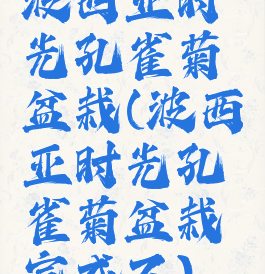 波西亚时
光孔雀菊
盆栽(波西
亚时光孔
雀菊盆栽